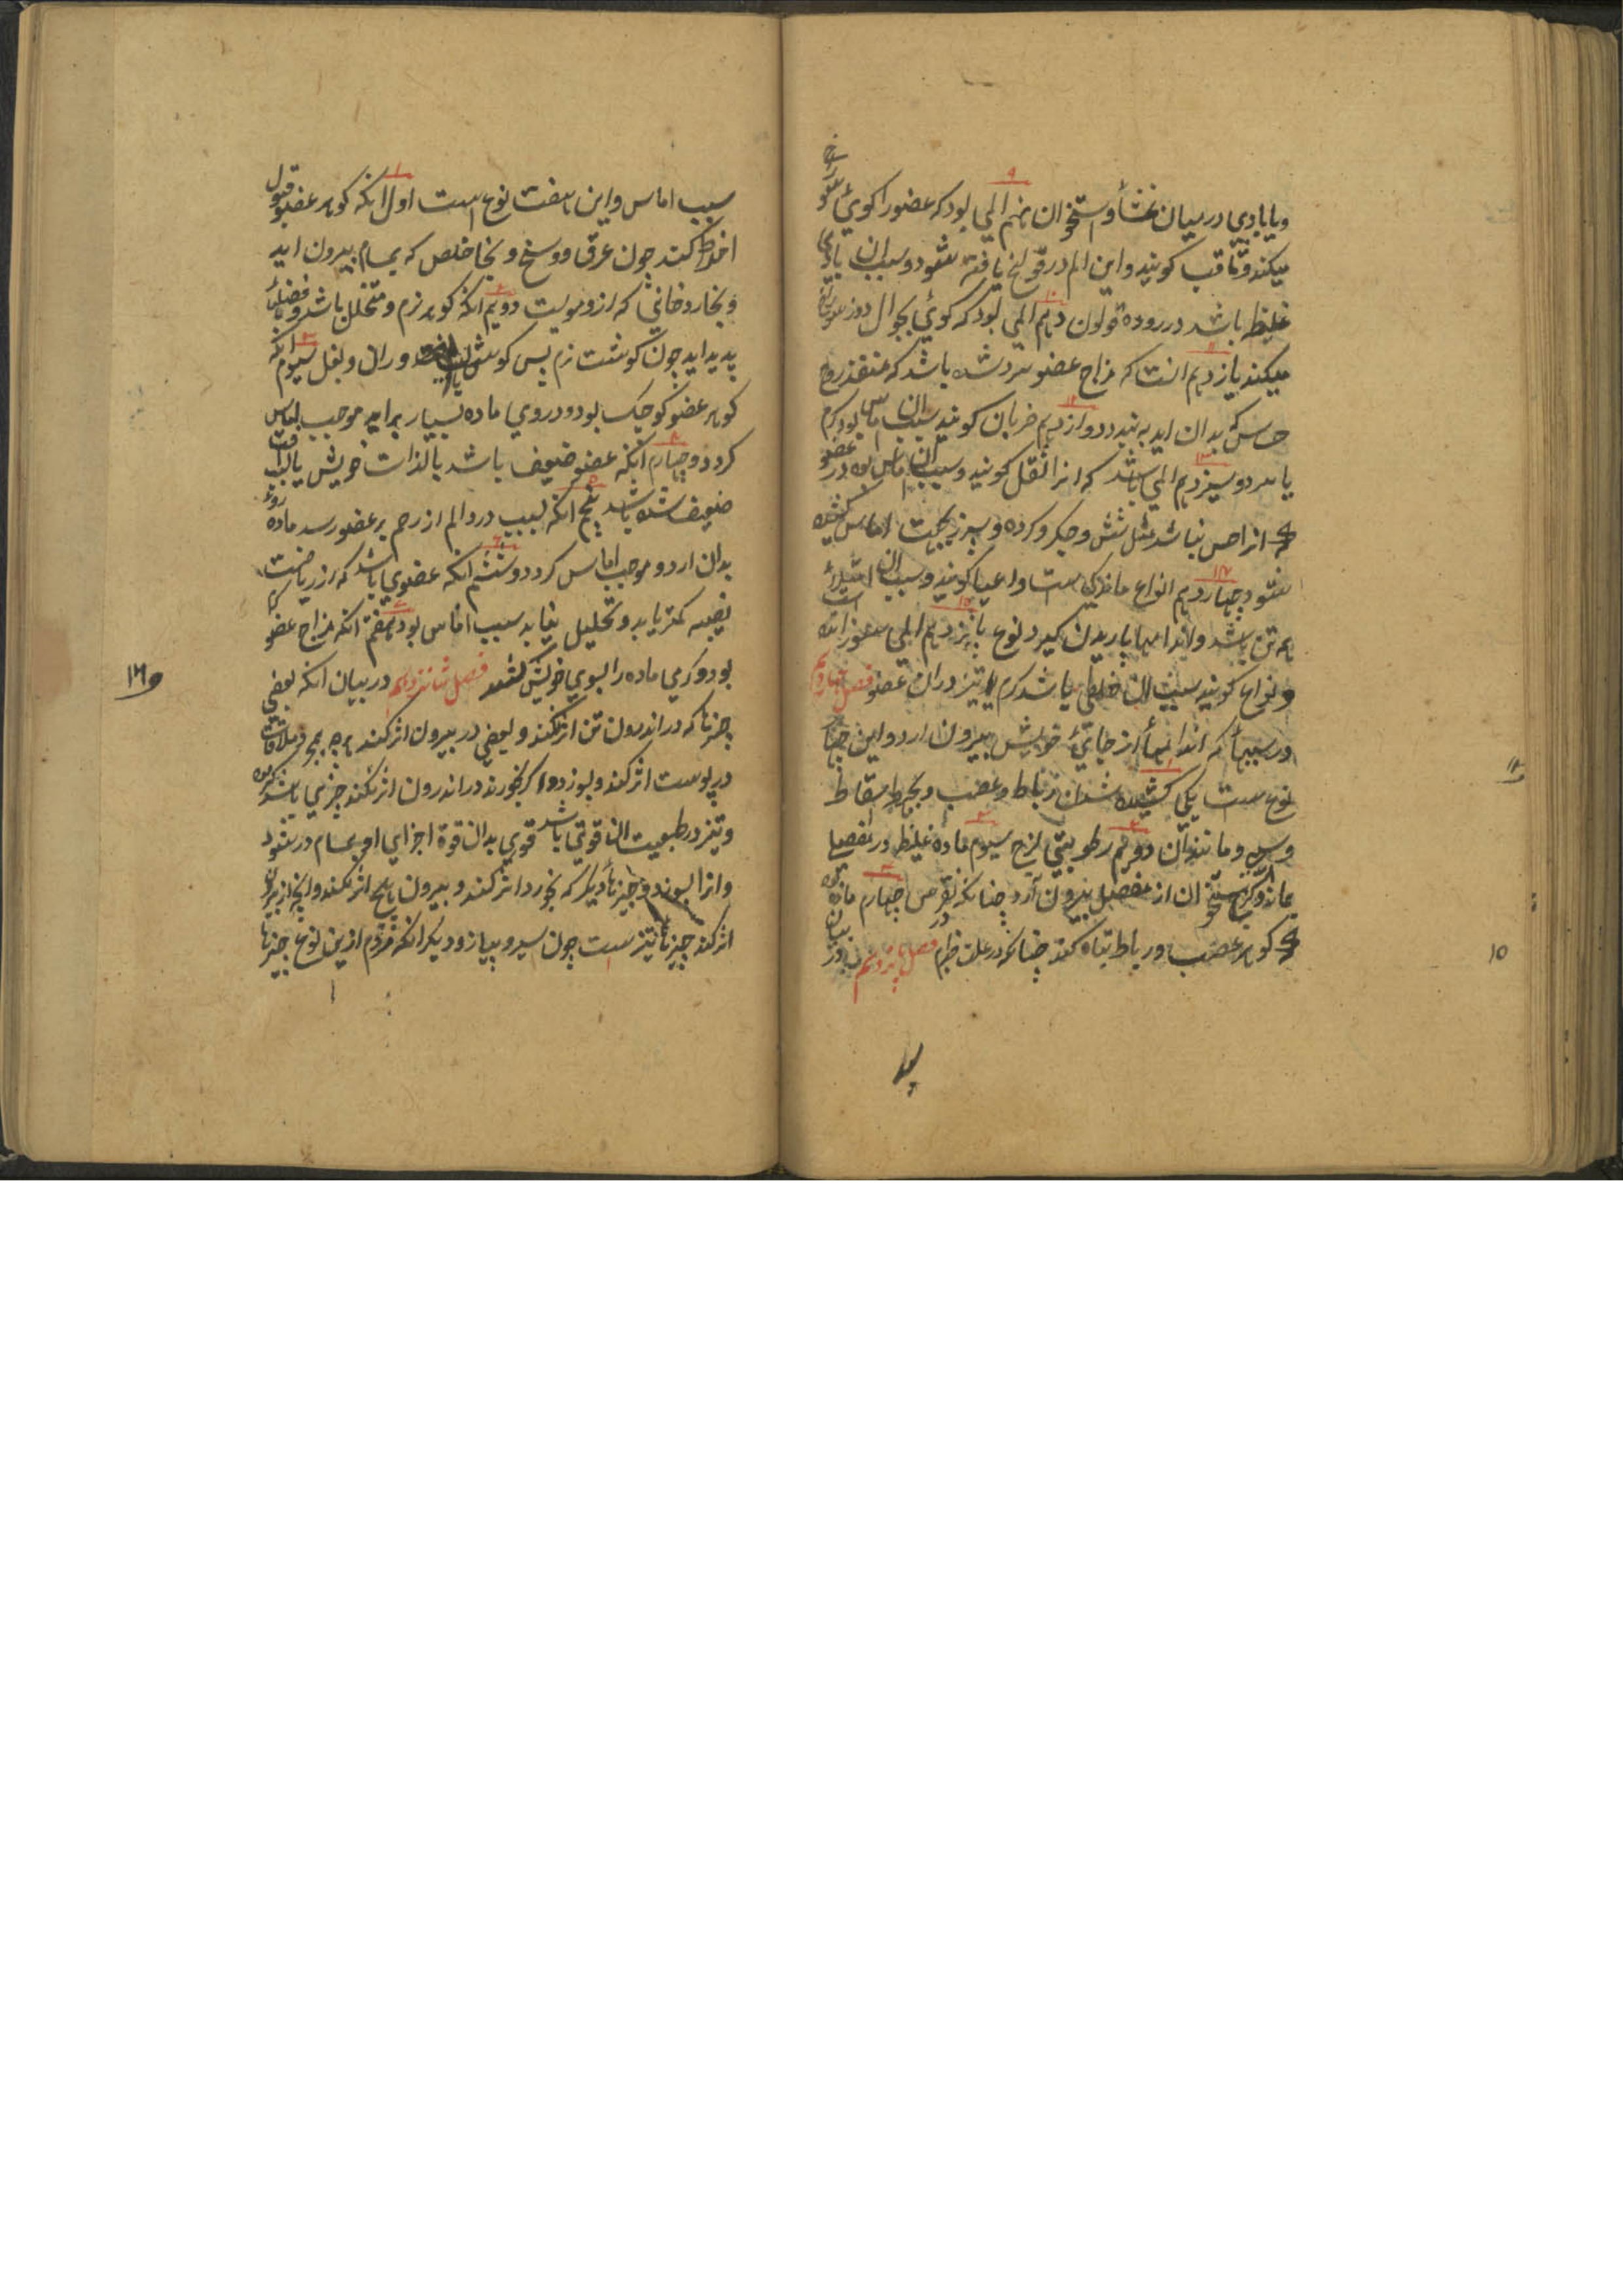 ویا بادی در میان غشأ و استخوان نهم المی بود که عضو را کوئی سوراخ
میکند و ثاقب کویند و این الم در قولنج یافته شود و سبب ان بادی
غلیظ باشد در روده قولون دهم المی بود که کوئی بجوال دوز سوراخ
میکند یازدهم انست که مزاج عضو سرد شده باشد که منفذ روح
حس که بدان اید به بندد دوازدهم ضربان کویند سبب ان اماس بود کرم
یا سرد و سیزدهم المی باشد که انرا ثقل کویند و سبب ان اماس بود در عضو
که انرا حس نباشد مثل شش و جکر و کرده و سپرز بجهت اماس کشیده
شود چهاردهم انواع ماندکی ست و اعیا کویند و سبب ان امتلاء است
تن باشد و اندامها باریدن کیرد نوع پانزدهم المی سوزانده
و لذاع کویند سبب ان خلطی باشد کرم تیز در ان عضو فصل چهاردهم
در سببهأ که اندامهأ از جائی خویش بیرون ارد و این چهار
نوع ست یکی کشیده شدن رباط و عصب و بخرط سقاط
و مانند ان دویم رطوبتی لزج سیوم ماده غلیظ در مفصلها
بماند و استخوان از مفصل بیرون آرد چنانکه در نقرص چهارم ماده بود
که کوهر عصب و رباط تباه کند چنانکه در علت جذام فصل پانزدهم در بیان
سبب
سبب اماس و این هفت نوع است اول انکه کوهر عضو قبول
اخلاط کند چون عرق و وسخ و بخار خلص که بمسام بیرون اید
و بخار دخانی که از و مویست دویم انکه کوهر نرم و متخلل باشد و فضلها
پدید اید چون کوشت نرم پس کوش و ران و بغل سیوم انکه
کوهر عضو کوچک بود و در وی ماده بسیار براید موجب اماس
کردد و چهارم انکه عضو ضعیف باشد بالذات خویش یا بافت
ضعیف شده باشد پنجم انکه بسبب درد و الم از زخم بر عضو رسد ماده روئ
بدان ارد و موجب اماس کردد و ششم انکه عضوی باشد که از ریاضت
نصیبه کمتر یابد و تحلیل نیابد سبب اماس بود هفتم انکه مزاج عضو کرم
بود و کرمی ماده را بسوی خویش کشد فصل شانزدهم در بیان انکه بعضی
چیزها که در اندرون تن اثر نکند و بعضی در بیرون اثر کند هرچه بمجرد ملاقات
در پوست اثر کند و بسوزد و اکر بخورند در اندرون اثر نکند چیزی باشد که کرم
و تیز در طبیعت ان قوتی باشد قوی بدان قوة اجزای او بمسام در شود
و انرا بسوزد و چیزهأ دیکر که بخورد اثر کند و بیرون هیچ اثر نکند و انچه از بیرون
اثر کند چیزهأ تیز ست چون سیر و پیاز و دیکر انکه مردم ازین نوع چیزها
۱۲
۱۵
۱۶